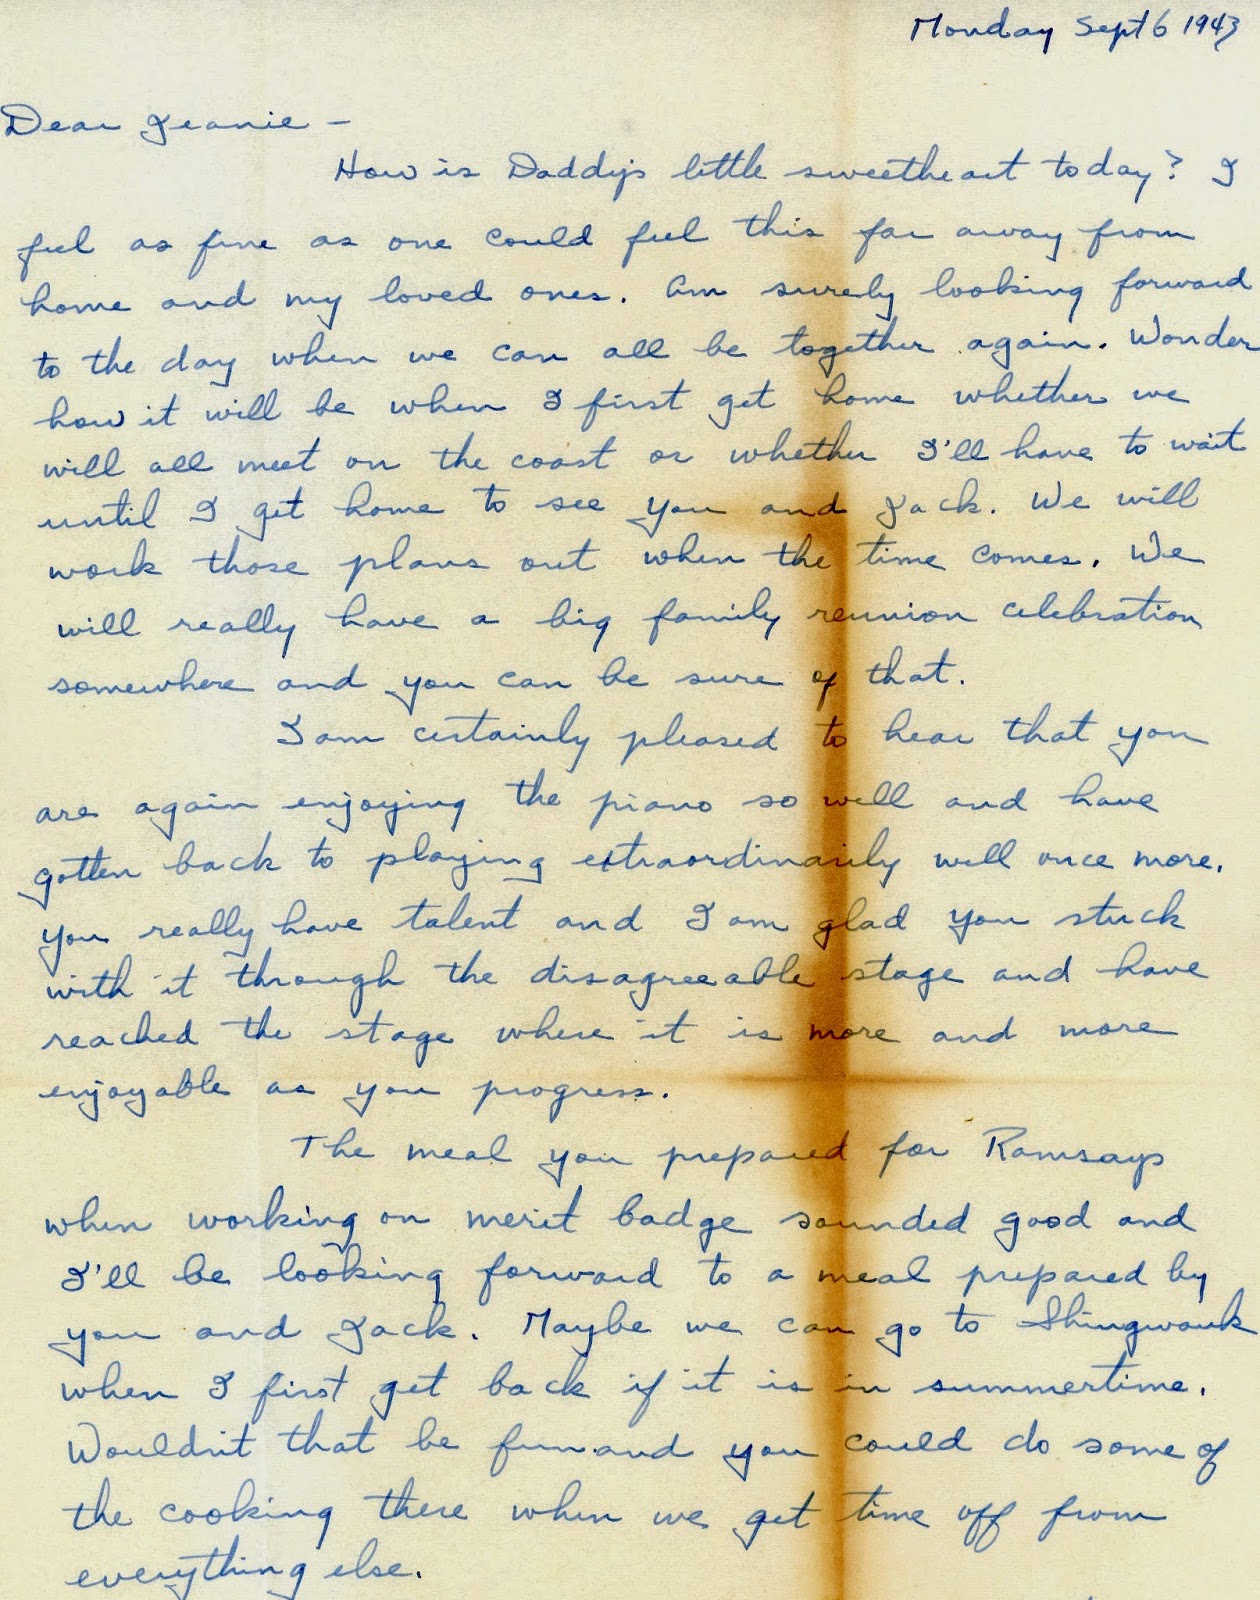 Monday Sept 6 1943
Dear Jeanie -
How is Daddy's little sweetheart today? I
feel as fine as one could feel this far away from
home and my loved ones. Am surely looking forward
to the day when we can all be together again. Wonder
how it will be when I first get home whether we
will all meet on the coast or whether I'll have to wait
until I get home to see you and Jack. We will
work those plans out when the time comes. We
will really have a big family reunion celebration
somewhere and you can be sure of that.
I am certainly pleased to hear that you
are again enjoying the piano so well and have
gotten back to playing extraordinarily well once more.
You really have talent and I am glad you stuck
with it through the disagreeable stage and have
reached the stage where it is more and more
enjoyable as you progress.
The meal you prepared for Ramsays
when working on merit badge sounded good and
I'll be looking forward to a meal prepared by
you and Jack. Maybe we can go to Shingwauk
when I first get back if it is in summertime.
Wouldn't that be fun and you could do some of
the cooking there when we get time off from
everything else.